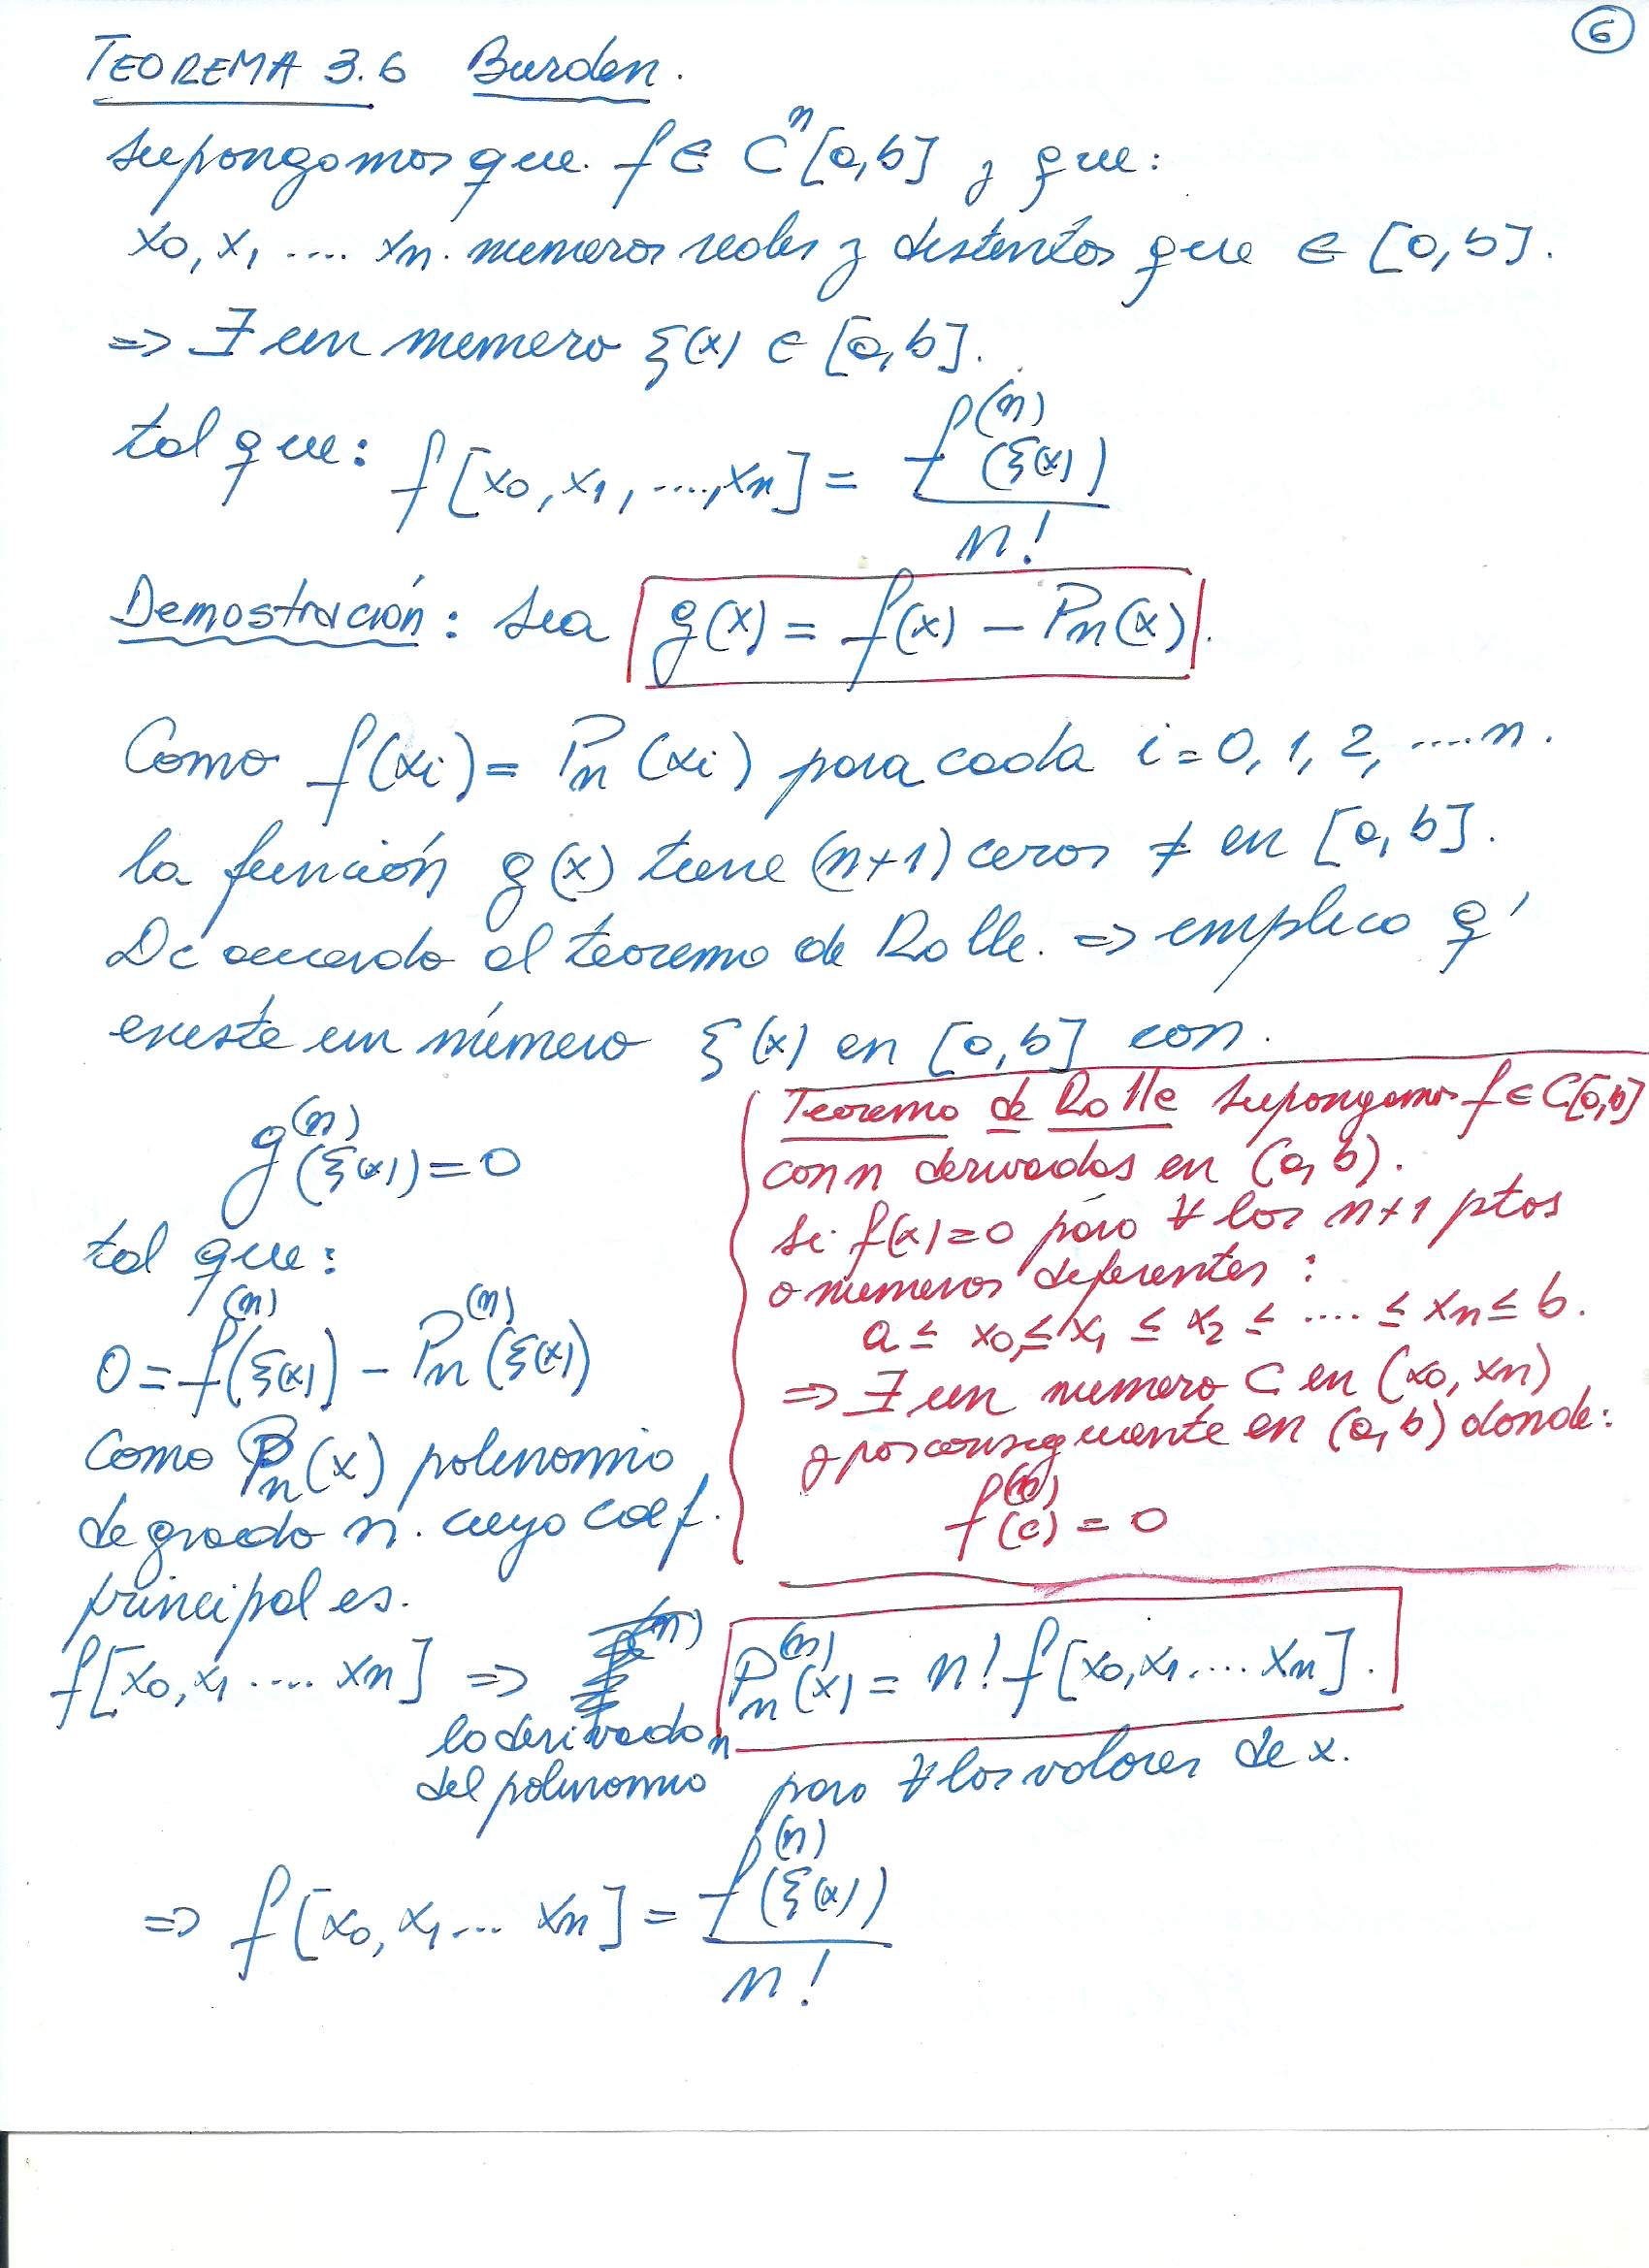 6
TEOREMA 3.6 Burden.
Supongamos que f ∈ Cⁿ[a,b] y que:
x0, x1 .... xn. numeros reales y distintos que ∈ [a,b].
=> ∃ un numero ξ(x) ∈ [a,b].
tal que: f[x0, x1, ...., xn] = f^(n)(ξ(x)) / n!
Demostración: Sea g(x) = f(x) - Pn(x).
Como f(xi) = Pn(xi) para cada i = 0, 1, 2, .... n.
la función g(x) tiene (n+1) ceros ≠ en [a,b].
De acuerdo al teorema de Rolle. => implica q'
existe un número ξ(x) en [a,b] con.
g^(n)(ξ(x)) = 0
tal que:
0 = f^(n)(ξ(x)) - Pn^(n)(ξ(x))
Como Pn(x) polinomio
de grado n. cuyo coef.
principal es.
Teorema de Rolle Supongamos f ∈ C[a,b]
con n derivadas en (a,b).
Si f(x) = 0 para ∀ los n+1 ptos
o numeros diferentes:
a ≤ x0, ≤ x1 ≤ x2 ≤ .... ≤ xn ≤ b.
=> ∃ un numero C en (x0, xn)
y por consiguiente en (a,b) donde:
f^(n)(c) = 0
f[x0, x1 .... xn] => Pn^(n)(x) = n! f[x0, x1 .... xn].
la derivada n
del polinomio para ∀ los valores de x.
=> f[x0, x1 ... xn] = f^(n)(ξ(x)) / n!